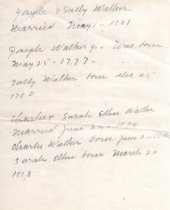 Joseph & Sally Walker
Married May 1 - 1801
Joseph Walker jr. was born
May 25 - 1777 -
Sally Walker born Dec 25 -
178
Charles & Sarah Ellen Walker
Married June
Charles Walker born June
Sarah Ellen born March 20
1813